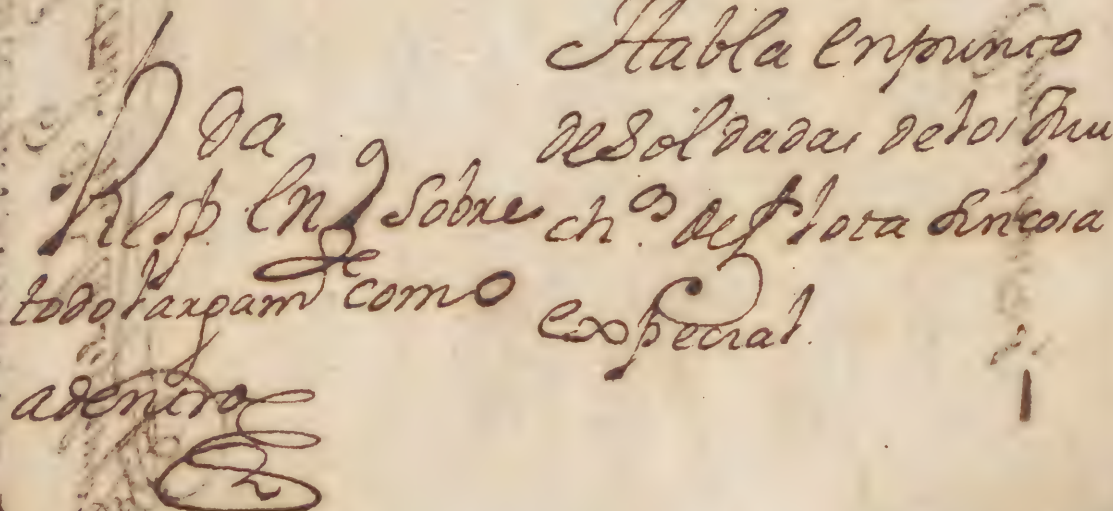 Respda en 9 sobre
todo largamte como
adentro
Habla en punto
de Soldadas de los Mu
chos de flota sin cosa
expecial.